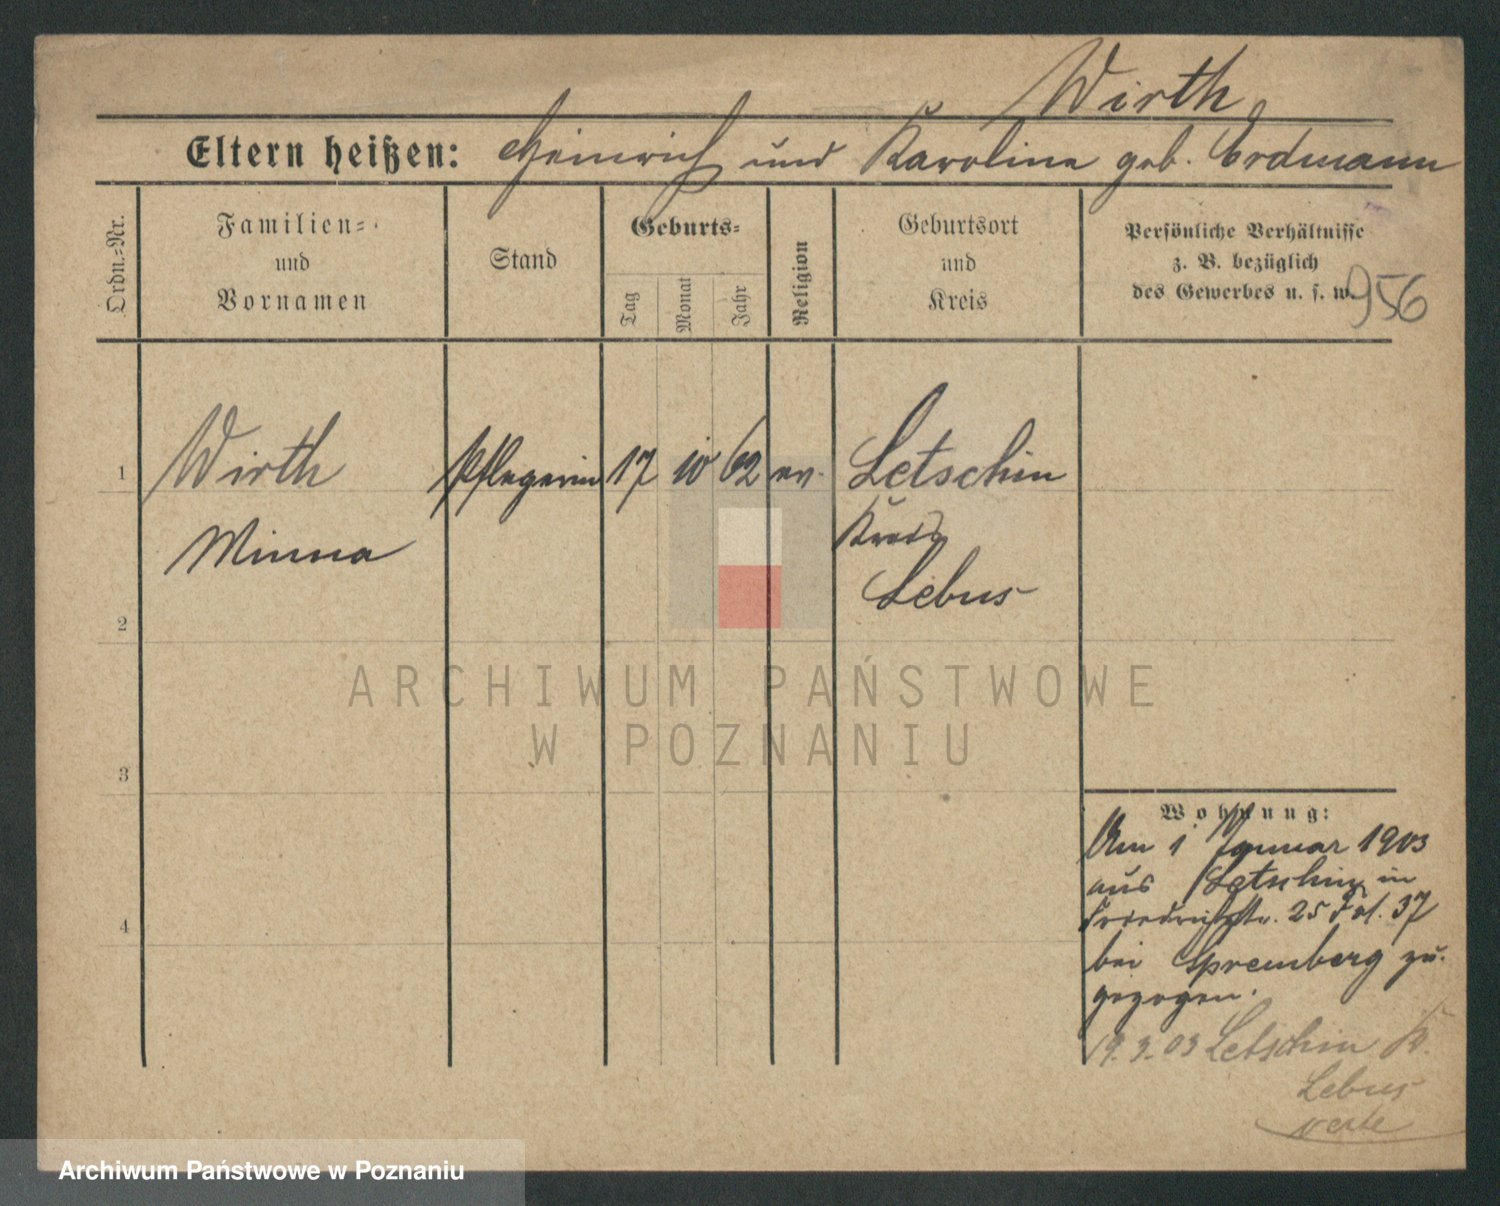 Wirth
Eltern heißen: Heinrich und Karoline geb. Erdmann
Ordn.-Nr.
Familien-
und
Vornamen
Stand
Geburts-
Tag
Monat
Jahr
Religion
Geburtsort
und
Kreis
Persönliche Verhältnisse
z. B. bezüglich
des Gewerbes u. s. w.
956
1 Wirth Pflegerin 17 10 62 ev. Letschin
Minna Kreis
2 Lebus
3
4
Wohnung:
Am 1 Januar 1903
aus Letschin in
Friedrichstr. 25 Fol. 37
bei Spremberg zu-
gezogen.
19.3.03 Letschin K.
Lebus
verte
ARCHIWUM PAŃSTWOWE
W POZNANIU
Archiwum Państwowe w Poznaniu